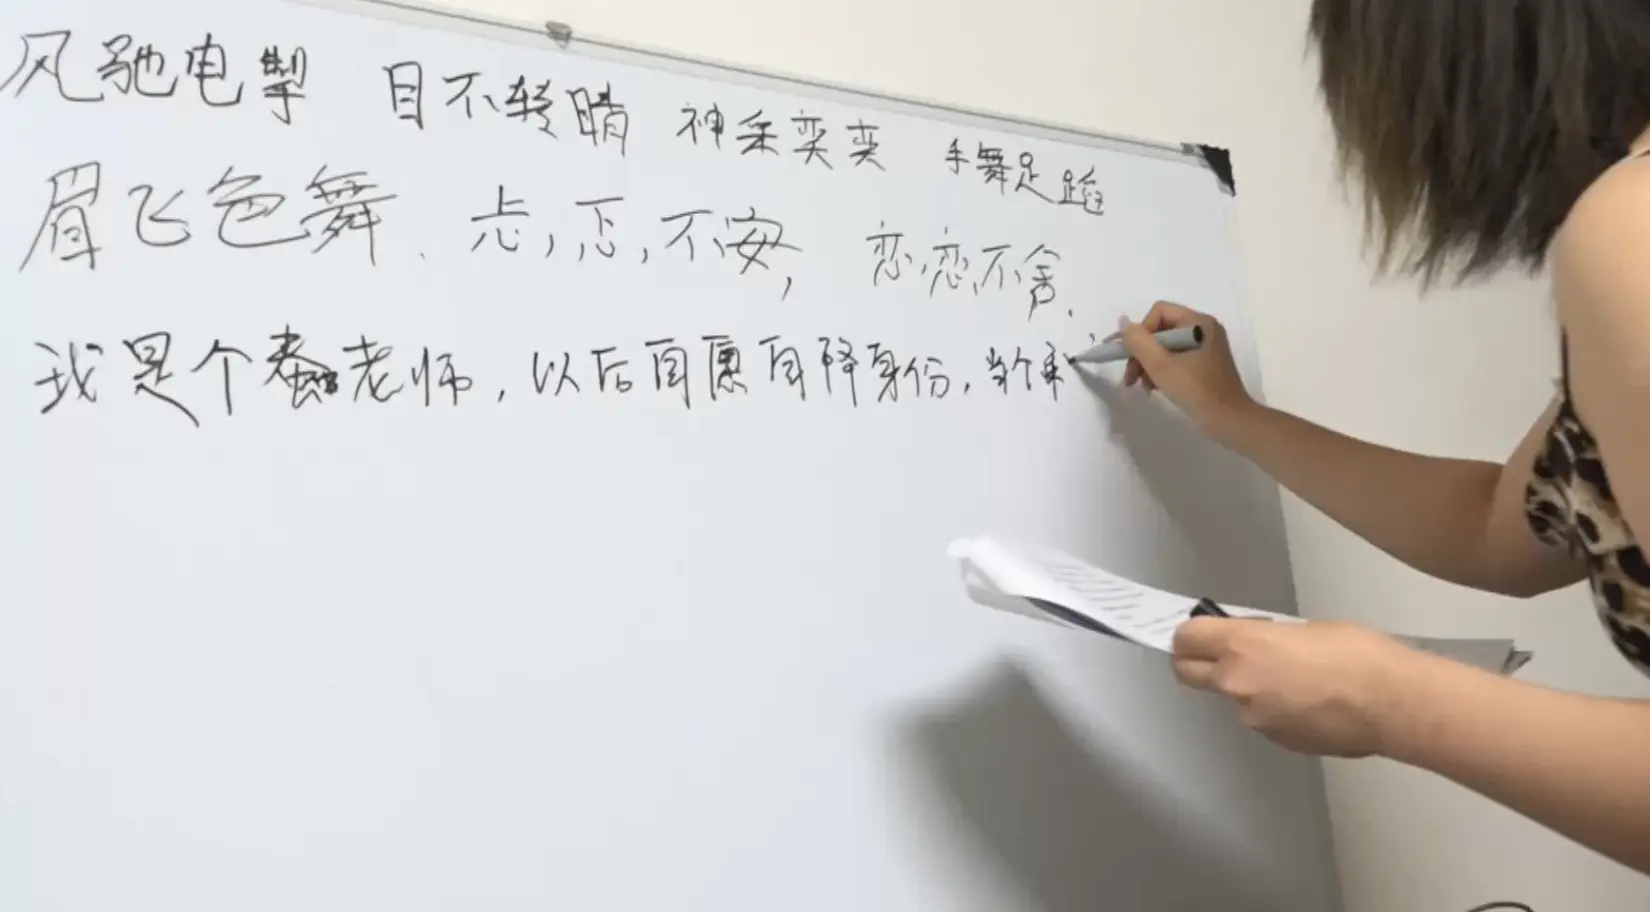 风驰电掣 目不转睛 神采奕奕 手舞足蹈
眉飞色舞、忐,忑,不安, 恋,恋,不舍.
我是个蠢老师,以后自愿自降身份,当个